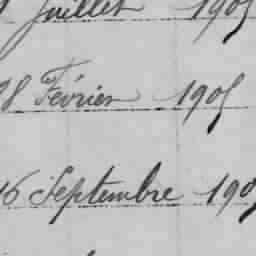 Juillet 1905
28 Février 1905
16 Septembre 190